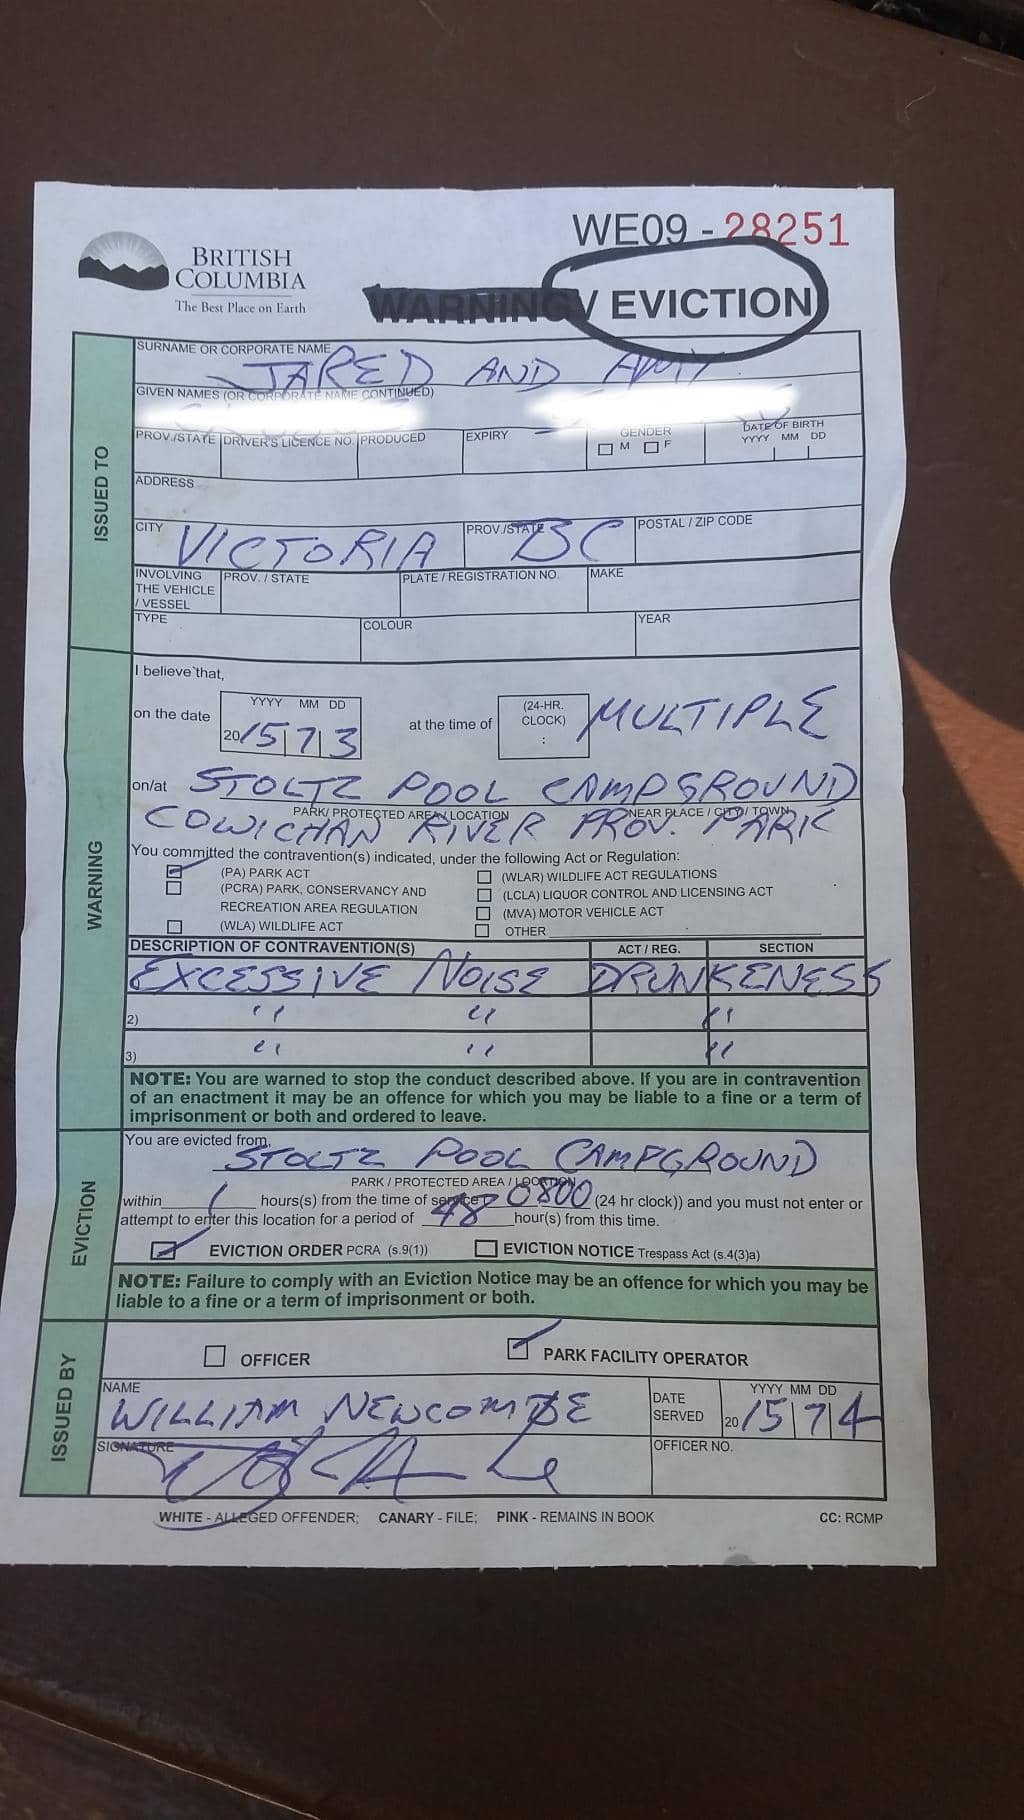 WE09 - 28251
BRITISH
COLUMBIA
The Best Place on Earth
WARNING / EVICTION
SURNAME OR CORPORATE NAME
JARED AND AMY
GIVEN NAMES (OR CORPORATE NAME CONTINUED)
PROV./STATE DRIVER'S LICENCE NO. PRODUCED EXPIRY GENDER M F DATE OF BIRTH YYYY MM DD
ADDRESS
CITY VICTORIA PROV./STATE BC POSTAL / ZIP CODE
INVOLVING THE VEHICLE / VESSEL PROV. / STATE PLATE / REGISTRATION NO. MAKE
TYPE COLOUR YEAR
ISSUED TO
I believe that,
on the date YYYY MM DD 2015 7 3 at the time of (24-HR. CLOCK) : MULTIPLE
on/at STOLTZ POOL CAMPGROUND
PARK/ PROTECTED AREA / LOCATION NEAR PLACE / CITY / TOWN
COWICHAN RIVER PROV. PARK
You committed the contravention(s) indicated, under the following Act or Regulation:
(PA) PARK ACT (WLAR) WILDLIFE ACT REGULATIONS
(PCRA) PARK, CONSERVANCY AND (LCLA) LIQUOR CONTROL AND LICENSING ACT
RECREATION AREA REGULATION (MVA) MOTOR VEHICLE ACT
(WLA) WILDLIFE ACT OTHER
WARNING
DESCRIPTION OF CONTRAVENTION(S) ACT / REG. SECTION
EXCESSIVE NOISE DRUNKENESS
2) " " "
3) " " "
NOTE: You are warned to stop the conduct described above. If you are in contravention
of an enactment it may be an offence for which you may be liable to a fine or a term of
imprisonment or both and ordered to leave.
You are evicted from, STOLTZ POOL CAMPGROUND
PARK / PROTECTED AREA / LOCATION
within 1 hours(s) from the time of service 0800 (24 hr clock)) and you must not enter or
attempt to enter this location for a period of 48 hour(s) from this time.
EVICTION ORDER PCRA (s.9(1)) EVICTION NOTICE Trespass Act (s.4(3)a)
EVICTION
NOTE: Failure to comply with an Eviction Notice may be an offence for which you may be
liable to a fine or a term of imprisonment or both.
OFFICER PARK FACILITY OPERATOR
ISSUED BY
NAME WILLIAM NEWCOMBE DATE SERVED YYYY MM DD 2015 7 4
SIGNATURE OFFICER NO.
WHITE - ALLEGED OFFENDER; CANARY - FILE; PINK - REMAINS IN BOOK CC: RCMP